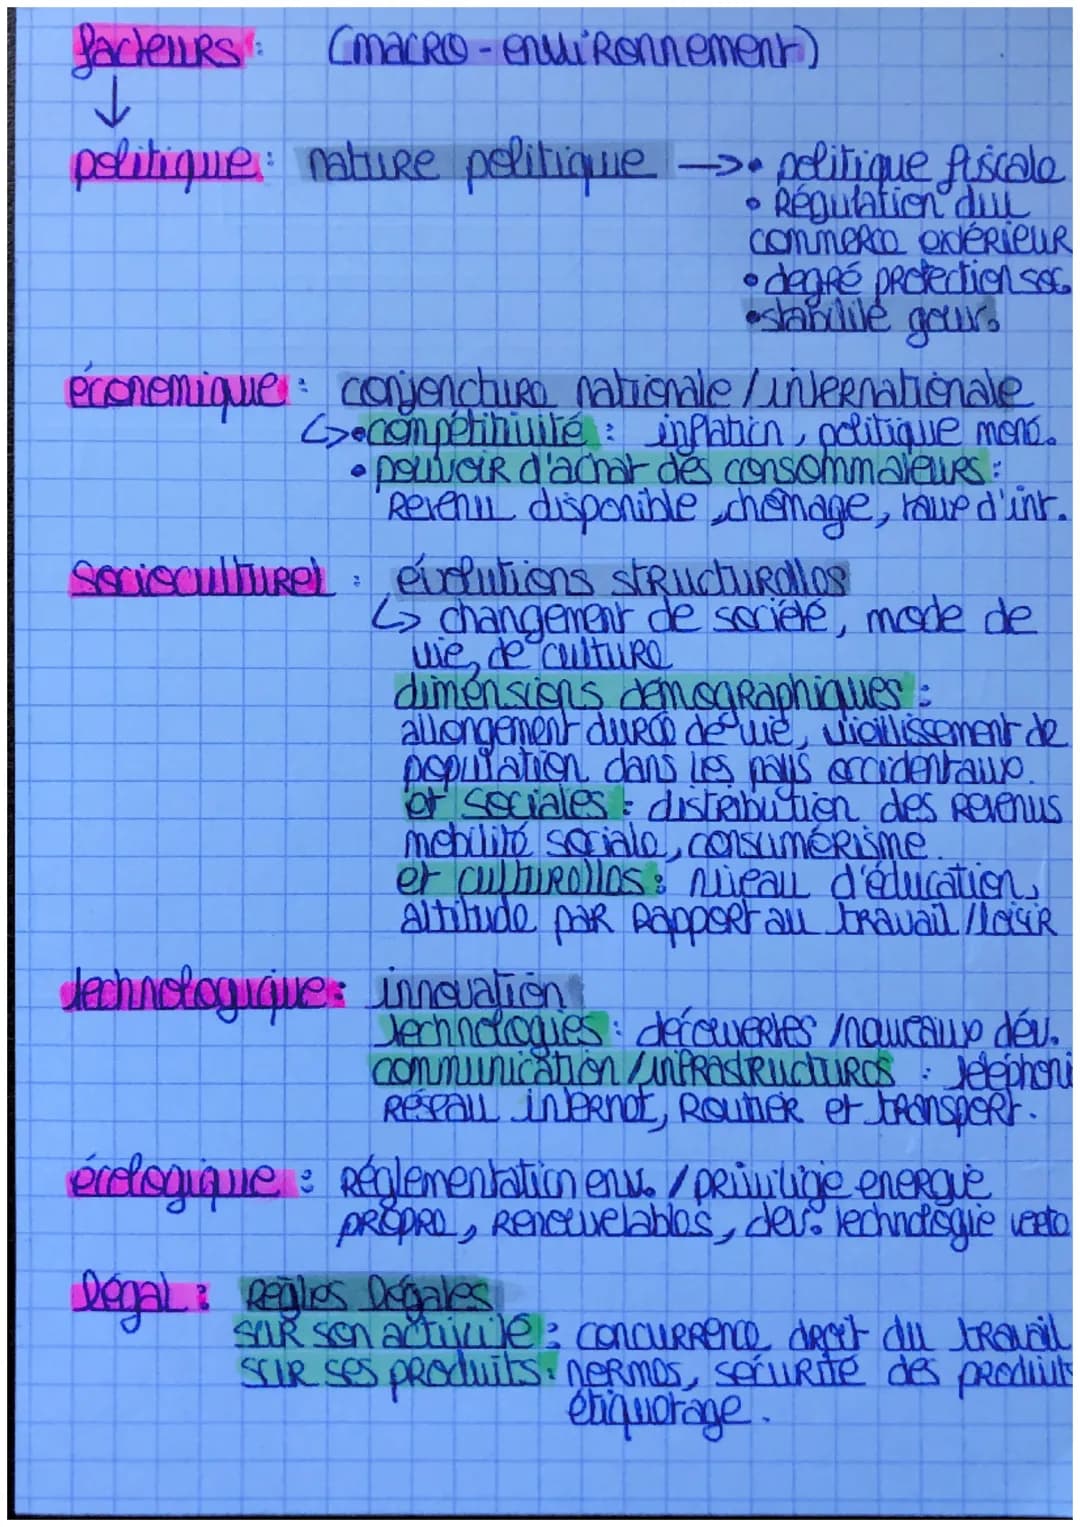 facteurs : (macro-environnement)
↓
politique : nature politique → • politique fiscale
• Régulation du
commerce extérieur
• degré protection soc.
• stabilité gouv.
économique : conjoncture nationale / internationale
↳ • compétitivité : inflation, politique moné.
• pouvoir d'achat des consommateurs :
Revenu disponible, chômage, taux d'int.
Socioculturel : évolutions structurelles
↳ changement de société, mode de
vie, de culture
dimensions démographiques :
allongement durée de vie, vieillissement de
population dans les pays occidentaux.
et sociales : distribution des revenus
mobilité sociale, consumérisme.
et culturelles : niveau d'éducation,
attitude par rapport au travail / loisir
technologique : innovation
technologies : découvertes / nouveaux dév.
communication / infrastructures : téléphoni
Réseau internet, Routier et transport.
écologique : Réglementation env. / privilige energie
propre, renouvelables, dev. technologie verte
Légal : Règles Légales
sur son activité : concurrence droit du travail
sur ses produits : normes, sécurité des produits
étiquetage.